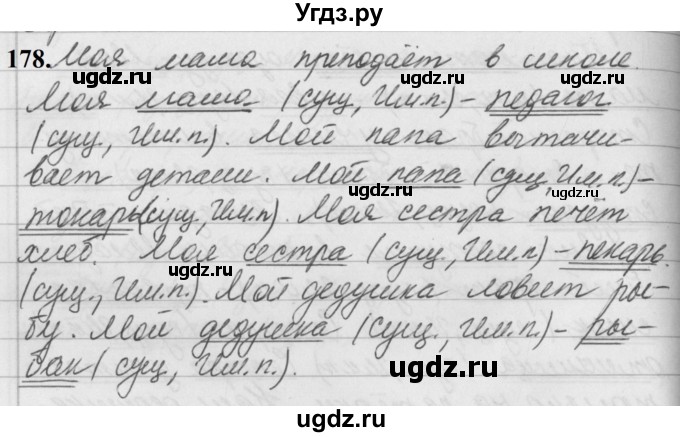 Угдз.ру
178. Моя мама преподаёт в школе.
ugdz.ru ugdz.ru
Моя мама (сущ., Им.п.) – педагог
(сущ., Им.п.). Мой папа вытачи-
ugdz.ru ugdz.ru
вает детали. Мой папа (сущ., Им.п.) –
токарь (сущ., Им.п.). Моя сестра печёт
ugdz.ru ugdz.ru
хлеб. Моя сестра (сущ., Им.п.) – пекарь.
(сущ., Им.п.). Мой дедушка ловит ры-
ugdz.ru ugdz.ru
бу. Мой дедушка (сущ., Им.п.) – ры-
бак (сущ., Им.п.).
ugdz.ru ugdz.ru
ugdz.ru